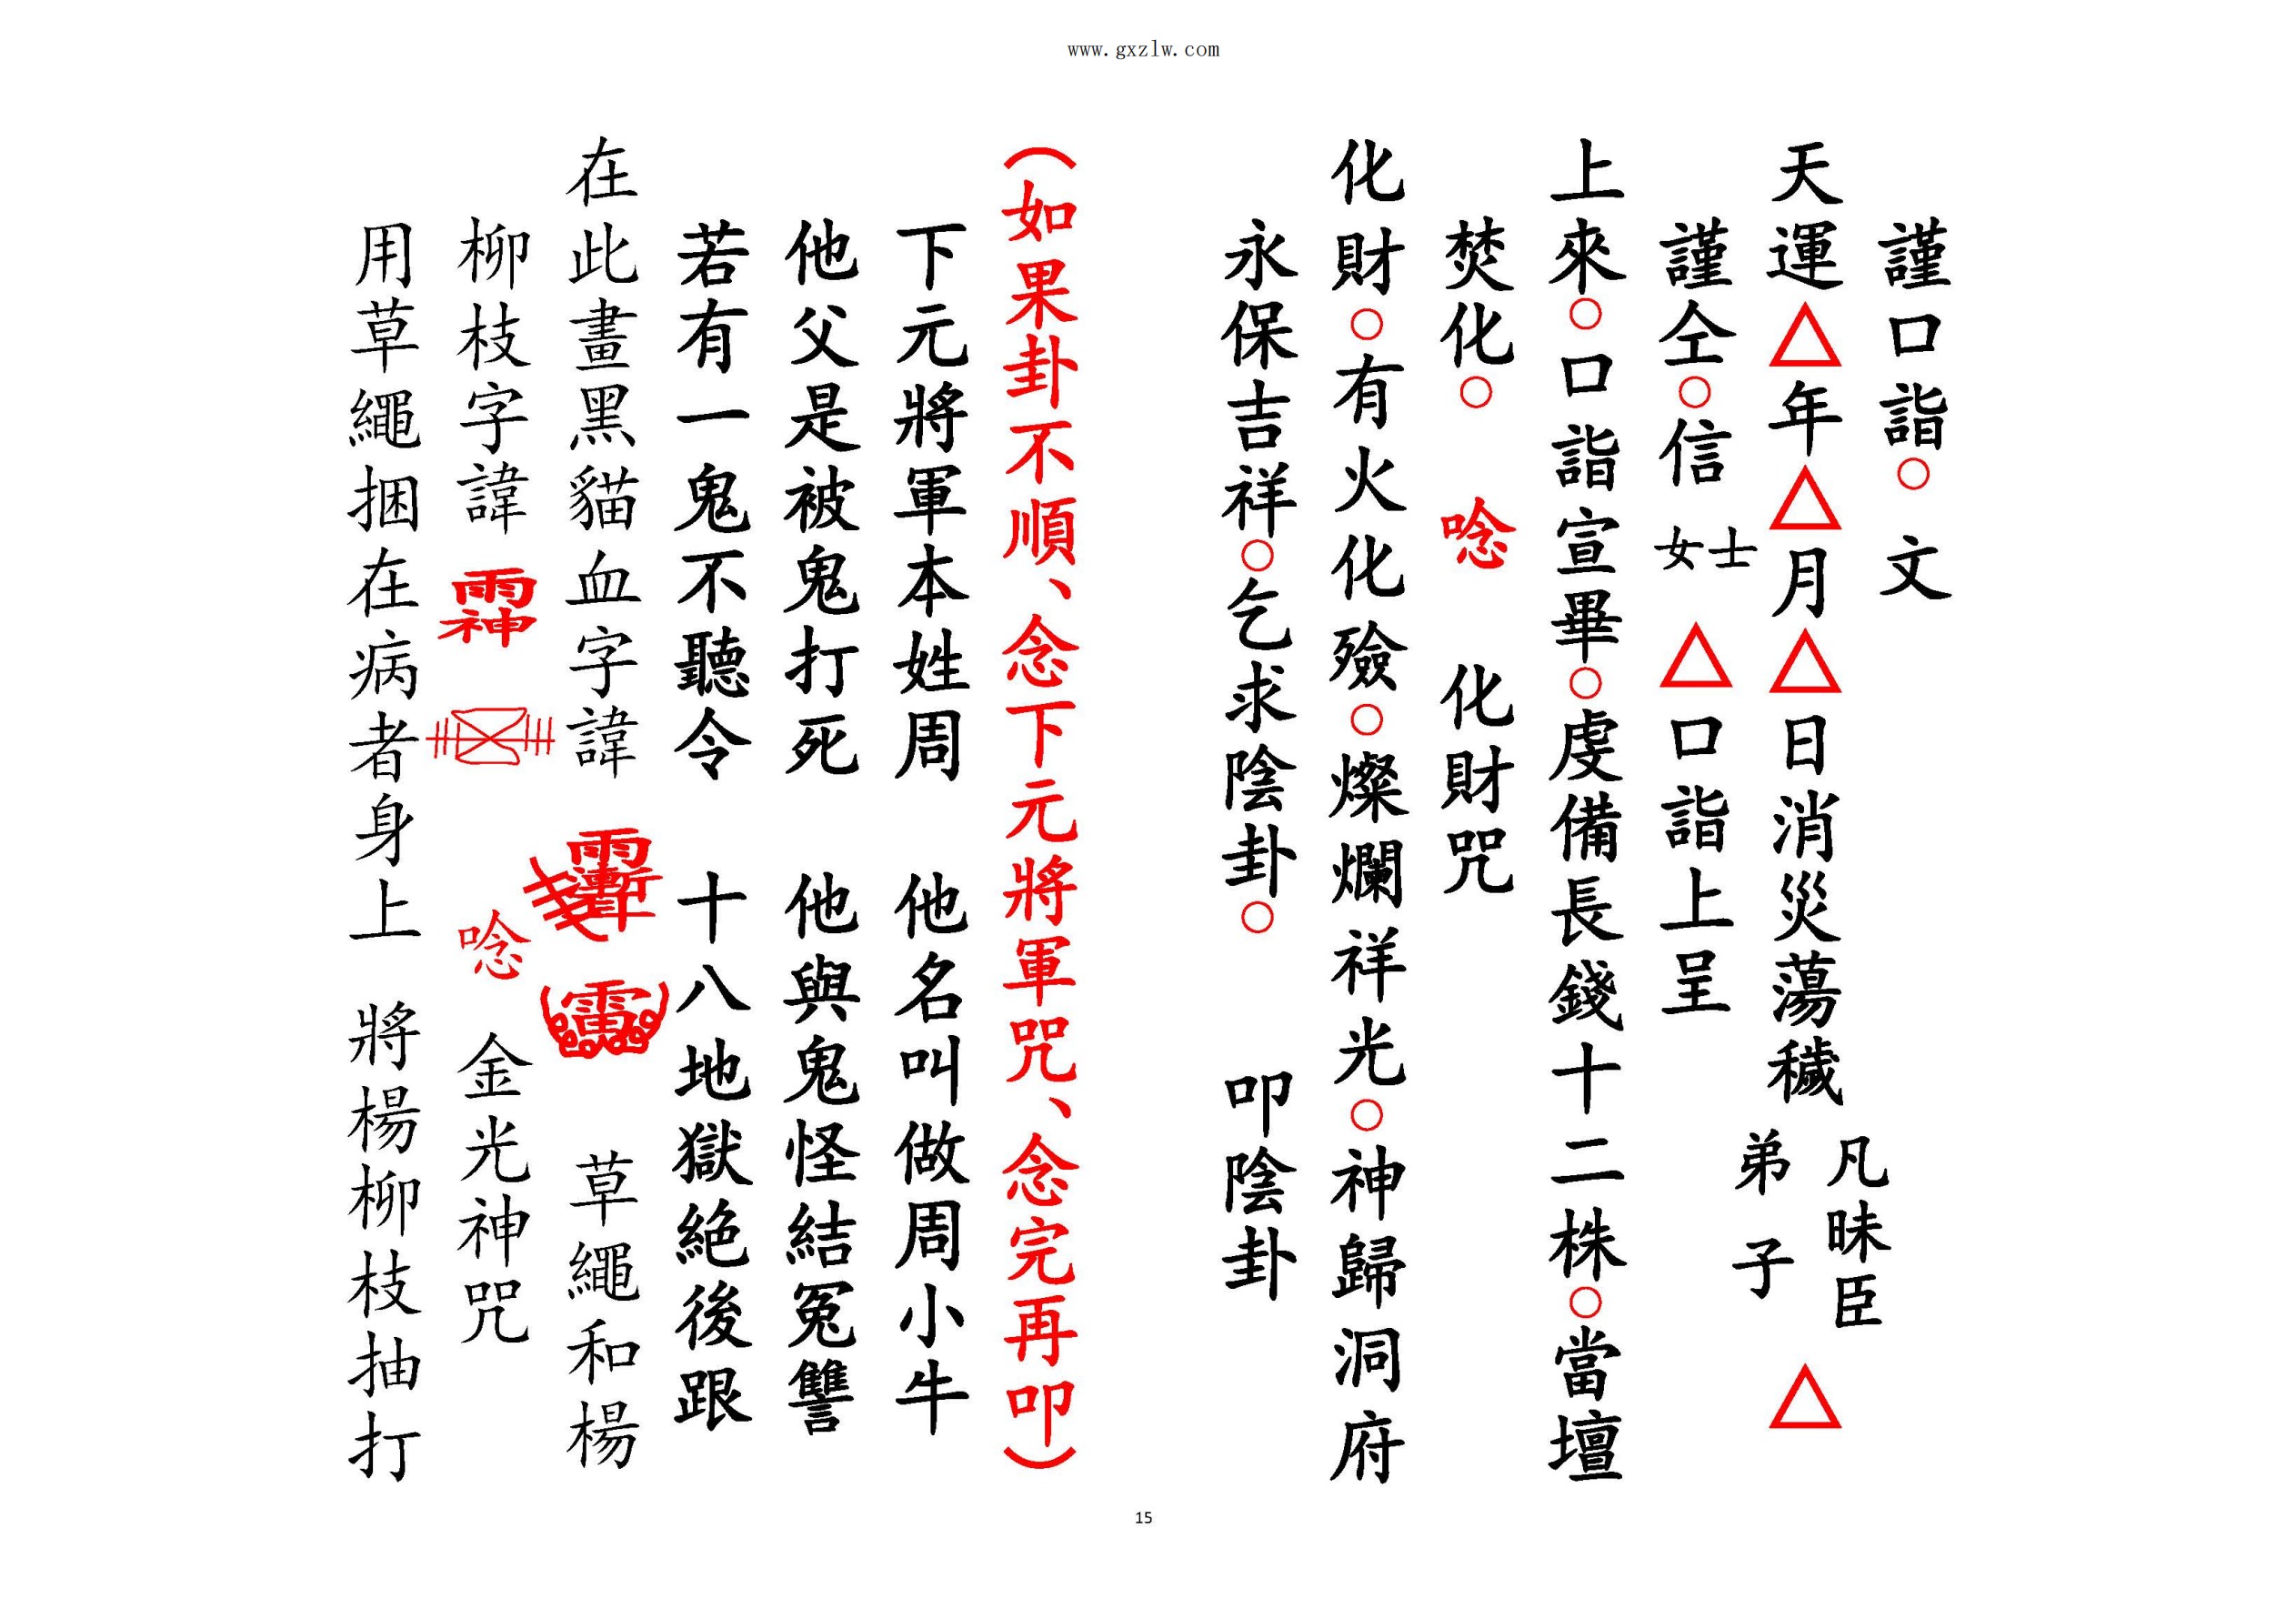 www.gxzlw.com
謹口詣○文
天運△年△月△日消災蕩穢 凡昧臣弟子 △
謹仝○信 女士 △口詣上呈
上來○口詣宣畢○虔備長錢十二株○當壇
焚化○ 唸 化財咒
化財○有火化殮○燦爛祥光○神歸洞府
永保吉祥○乞求陰卦○ 叩陰卦
（如果卦不順、念下元將軍咒、念完再叩）
下元將軍本姓周 他名叫做周小牛
他父是被鬼打死 他與鬼怪結冤讐
若有一鬼不聽令 十八地獄絕後跟
在此畫黑貓血字諱 草繩和楊
柳枝字諱 唸 金光神咒
用草繩捆在病者身上 將楊柳枝抽打
15